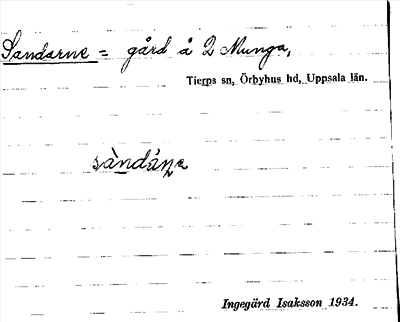 Sandarne = gård å 2 Munga,
Tierps sn, Örbyhus hd, Uppsala län.
sàndáṇe
Ingegärd Isaksson 1934.